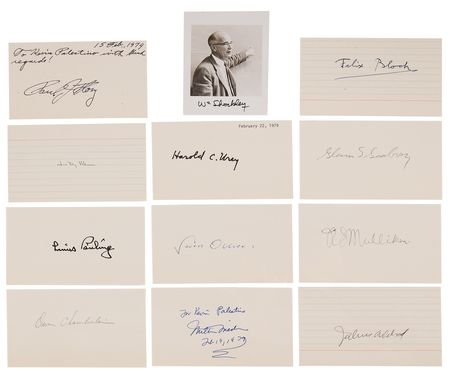 15 Feb. 1979
To Kevin Palestino with kind
regards!
Paul J. Flory
Wm Shockley
Felix Bloch
February 22, 1979
Harold C. Urey
Glenn T. Seaborg
Linus Pauling
Lars Onsager
R S Mulliken
Owen Chamberlain
For Kevin Palestino
Milton Friedman
Feb 19, 1979
Julius Axelrod